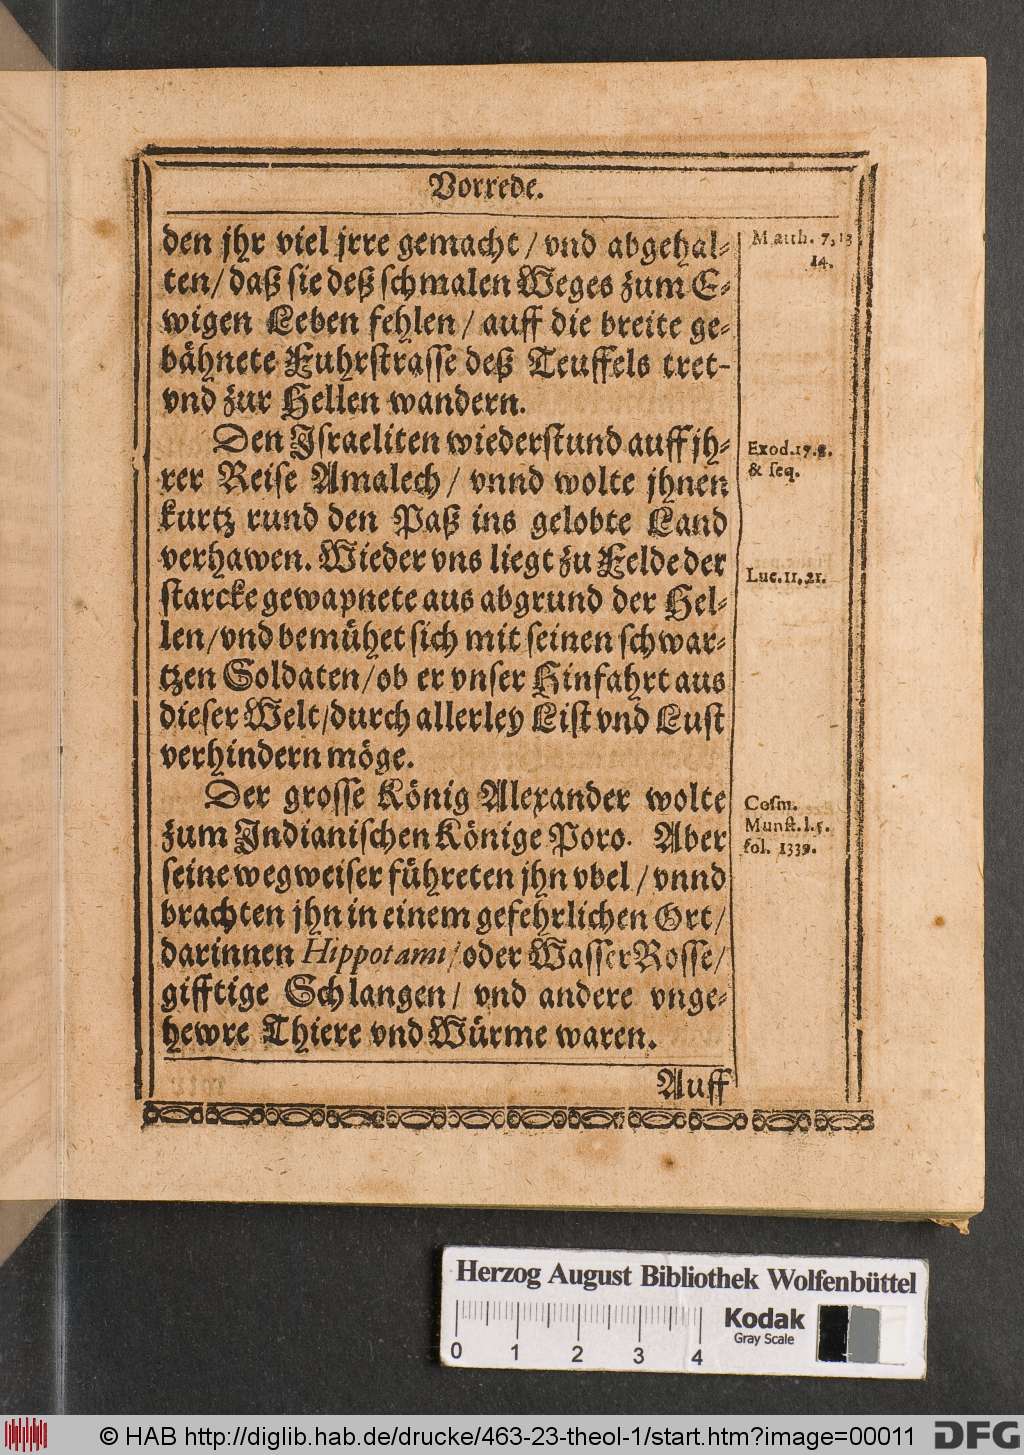 Vorrede.
den jhr viel jrre gemacht / vnd abgehal-
ten / daß sie deß schmalen Weges zum E-
wigen Leben fehlen / auff die breite ge-
bähnete Fuhrstrasse deß Teuffels tret-
vnd zur Hellen wandern.
Matth. 7, 13
14.
Den Jsraeliten wiederstund auff jh-
rer Reise Amalech / vnnd wolte jhnen
kurtz rund den Paß ins gelobte Land
verhawen. Wieder vns liegt zu Felde der
starcke gewapnete aus abgrund der Hel-
len / vnd bemühet sich mit seinen schwar-
tzen Soldaten / ob er vnser Hinfahrt aus
dieser Welt / durch allerley List vnd Lust
verhindern möge.
Exod. 17. 8.
& seq.
Luc. 11, 21.
Der grosse König Alexander wolte
zum Jndianischen Könige Poro. Aber
seine wegweiser führeten jhn vbel / vnnd
brachten jhn in einem gefehrlichen Ort /
darinnen Hippotami / oder WasserRosse /
gifftige Schlangen / vnd andere vnge-
hewre Thiere vnd Würme waren.
Cosm.
Munst. l. 5.
fol. 1339.
Auff
Herzog August Bibliothek Wolfenbüttel
Kodak
Gray Scale
0 1 2 3 4
© HAB http://diglib.hab.de/drucke/463-23-theol-1/start.htm?image=00011
DFG